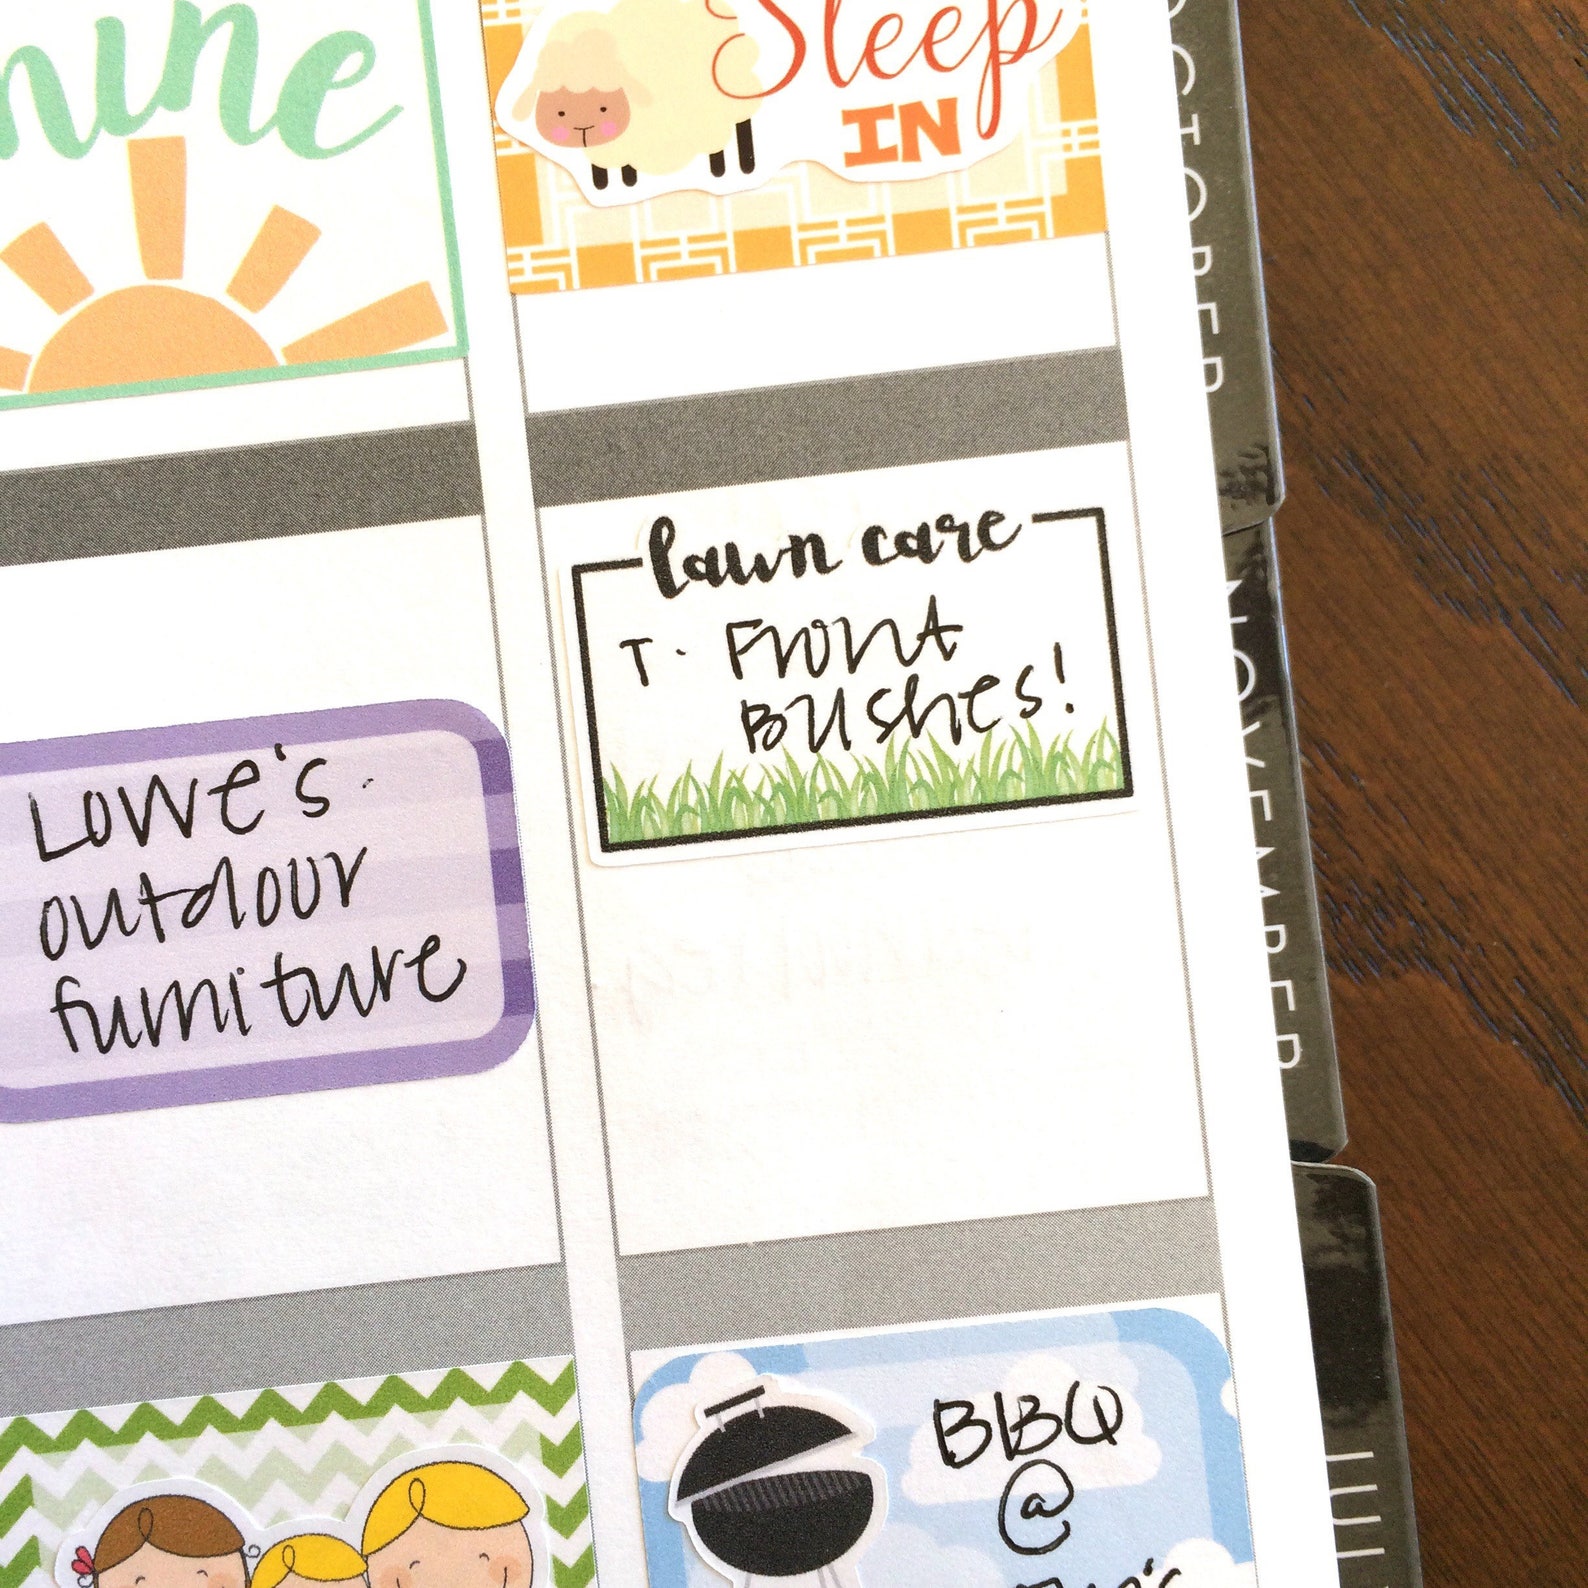 Sleep
IN
lawn care
T. Front
Bushes!
Lowe's.
outdoor
furniture
BBQ
@
OCTOBER
NOVEMBER